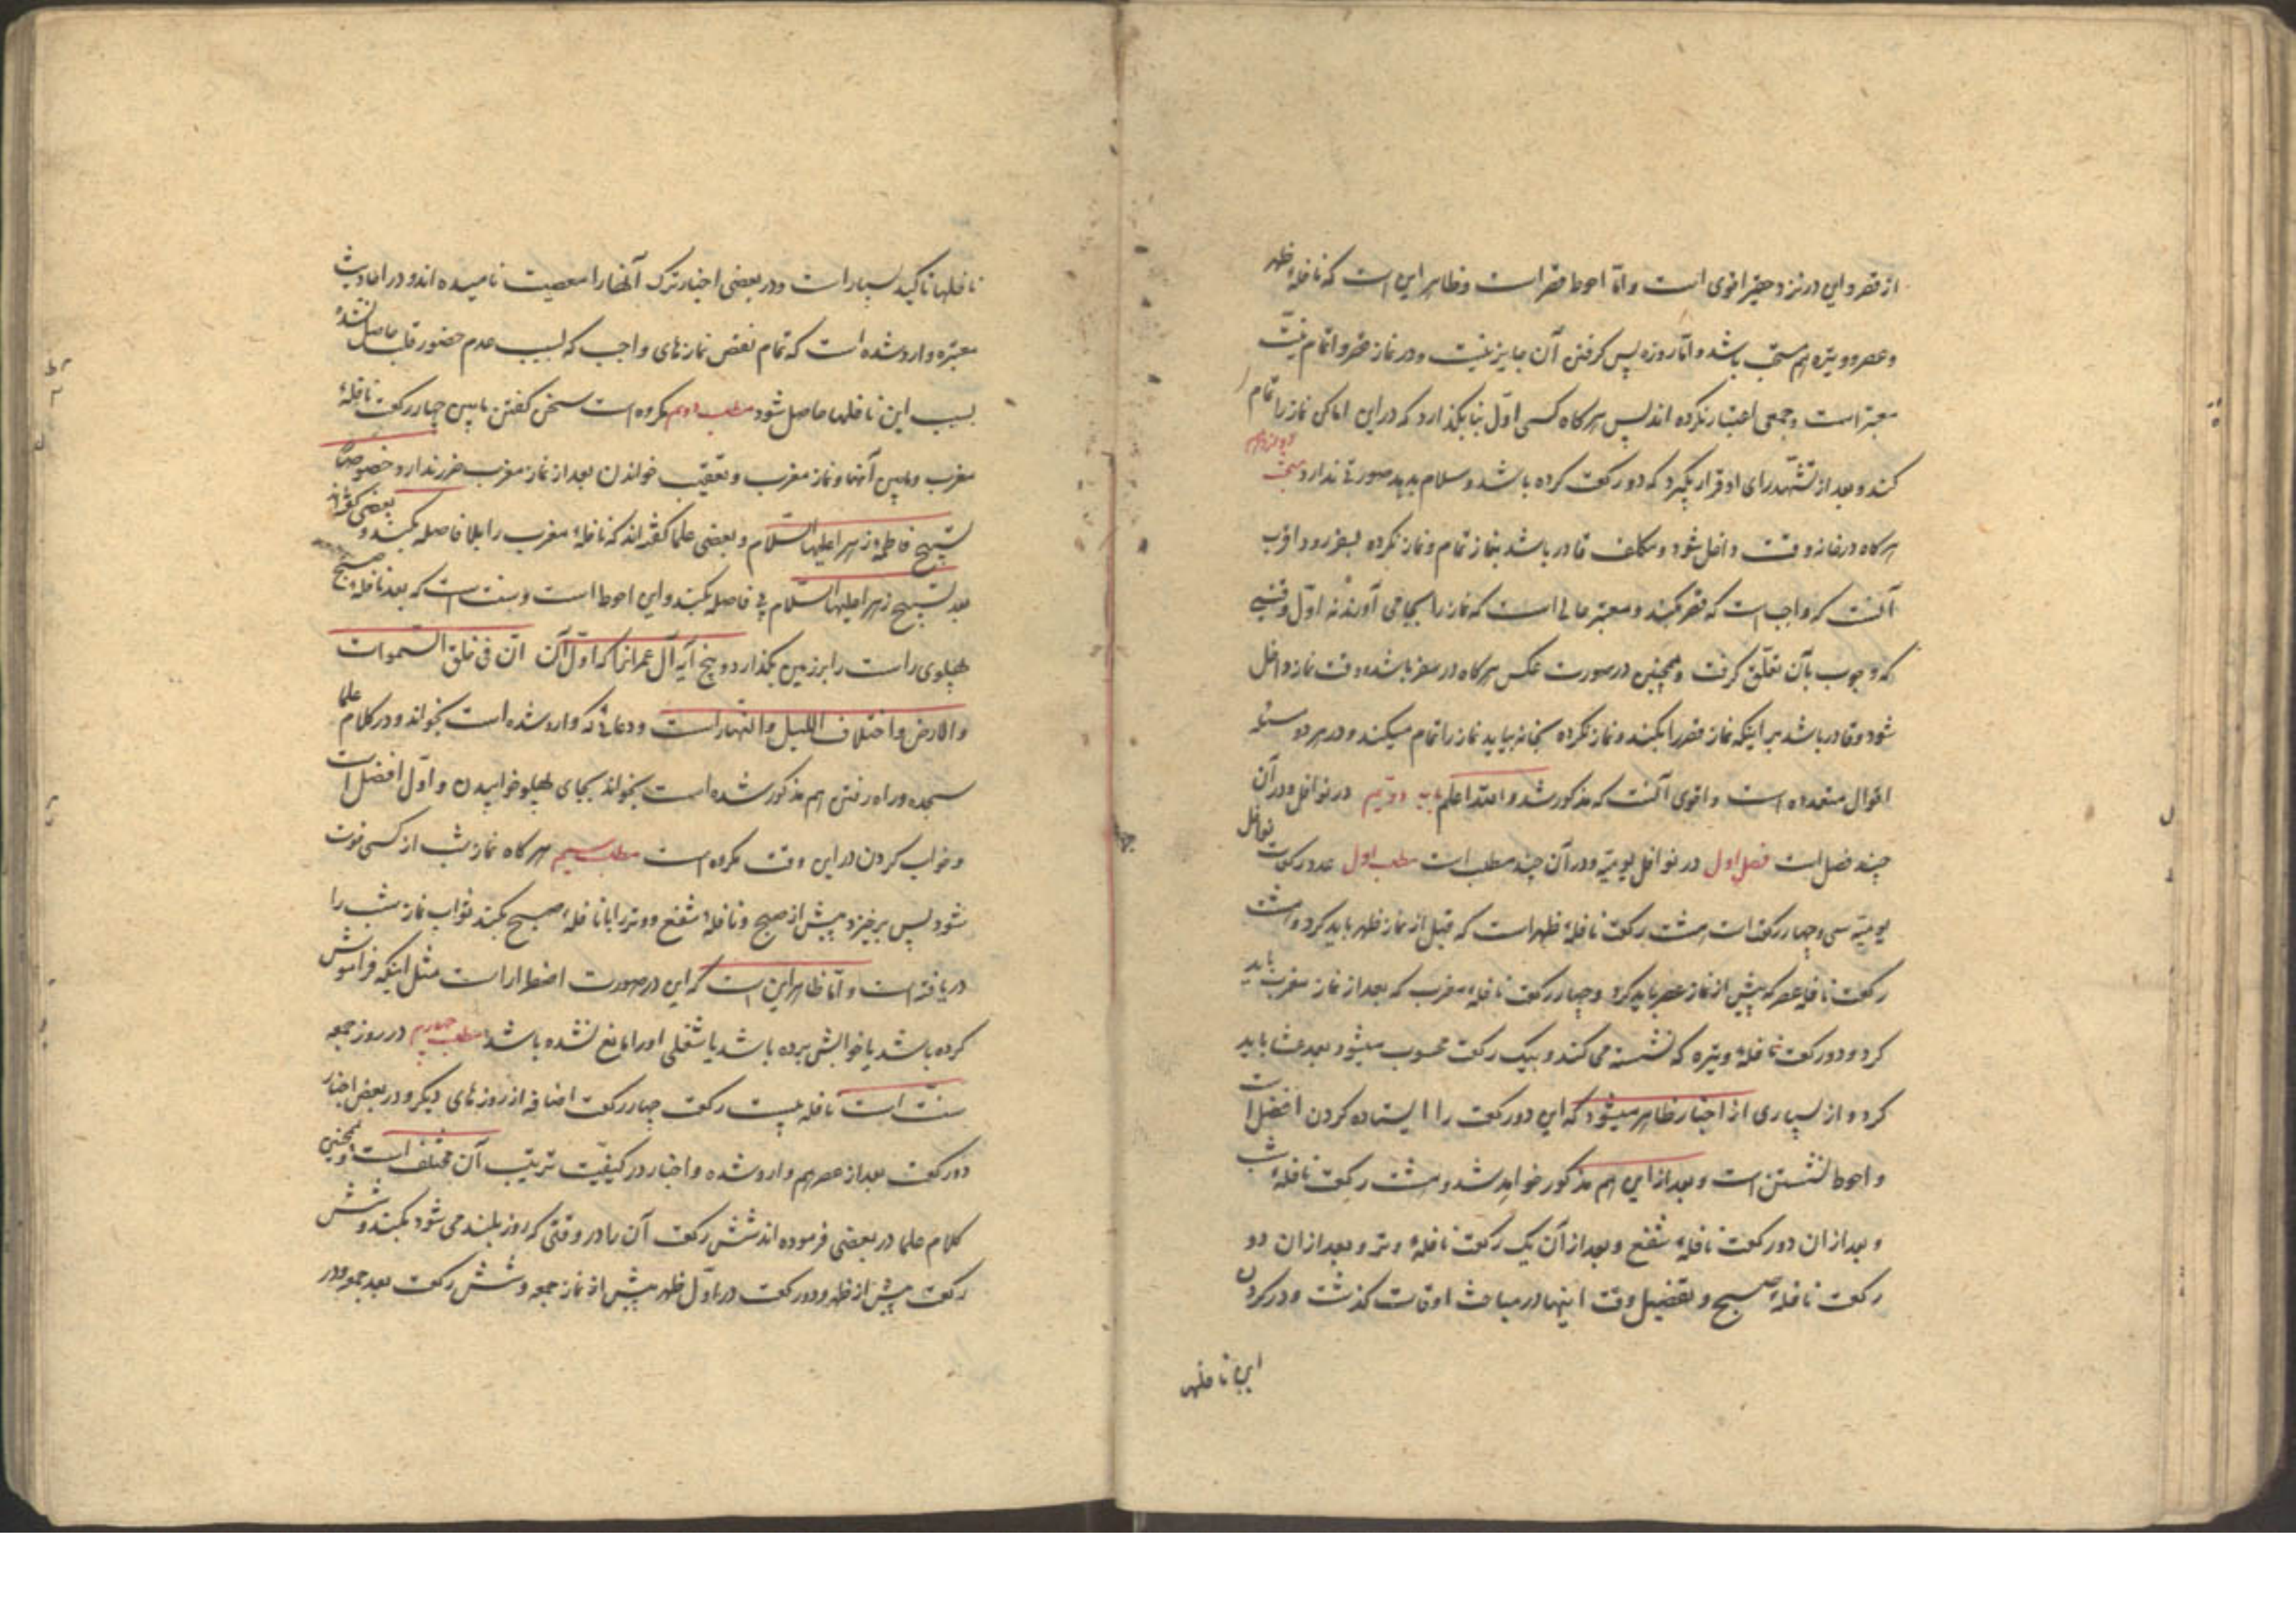 از قصر و این در نزد حقیر اقوی است و امّا احوط قصر است و ظاهر این است که نافلهٔ ظهر
و عصر و وتیره هم مستحب باشد و امّا روزه پس گرفتن آن جایز نیست و در نماز قصر و اتمام نیّت
معتبر است و جمعی اعتبار نکرده اند پس هرگاه کسی اوّل بنا بگذارد که در این اماکن نماز را تمام
کند و بعد از تشهّد رای او قرار بگیرد که دو رکعت کرده باشد و سلام بدهد صورتی ندارد مبحث دوازدهم
هرگاه در خانه وقت داخل شود و مکلف قادر باشد بنماز تمام و نماز نکرده بسفر رود اقرب
آنست که واجب است که قصر کند و معتبر حالی است که نماز را بجا می آورد نه اوّل وقتی
که وجوب بآن تعلّق گرفت و همچنین در صورت عکس هرگاه در سفر باشد وقت نماز داخل
شود و قادر باشد بر اینکه نماز قصر را بکند و نماز نکرده بخانه بیاید نماز را تمام میکند و در هر دو مسئله
اقوال متعدده است و اقوی آنست که مذکور شد و الله اعلم باب دوّیم در نوافل و در آن
چند فصل است فصل اول در نوافل یومیّه و در آن چند مطلب است مطلب اول عدد رکعت نوافل
یومیّه سی و چهار رکعت است هشت رکعت نافلهٔ ظهر است که قبل از نماز ظهر باید کرد و هشت
رکعت نافلهٔ عصر که پیش از نماز عصر باید کرد و چهار رکعت نافلهٔ مغرب که بعد از نماز مغرب باید
کرد و دو رکعت نافلهٔ وتیره که نشسته می کنند و بیک رکعت محسوب میشود بعد عشا باید
کرد و از بسیاری از اخبار ظاهر میشود که این دو رکعت را ایستاده کردن افضل است
و احوط نشستن است و بعد از این هم مذکور خواهد شد و هشت رکعت نافلهٔ شب
و بعد از ان دو رکعت نافلهٔ شفع و بعد از آن یک رکعت نافلهٔ وتر و بعد از ان دو
رکعت نافلهٔ صبح و تفصیل وقت اینها در مباحث اوقات گذشت و در کردن
این نافلها
نافلها تاکید بسیار است و در بعضی اخبار ترک آنها را معصیت نامیده اند و در احادیث
معتبره وارد شده است که تمام نقص نمازهای واجب که بسبب عدم حضور قلب حاصل شده
بسبب این نافلها حاصل شود مطلب دوم مکروه است سخن گفتن مابین چهار رکعت نافلهٔ
مغرب و مابین آنها و نماز مغرب و تعقیب خواندن بعد از نماز مغرب ضرر ندارد خصوصا
تسبیح فاطمه زهرا علیها السّلام و بعضی علما گفته اند که نافلهٔ مغرب را بلا فاصله بکند و بعضی گفته اند
بعد تسبیح زهرا علیها السّلام بی فاصله بکند و این احوط است و سنت است که بعد نافلهٔ صبح
پهلوی راست را بر زمین بگذارد و پنج آیه آل عمران را که اوّل آن انّ فی خلق السّموات
والارض واختلاف اللیل والنّهار است و دعائی که وارد شده است بخواند و در کلام علما
سجده و راه رفتن هم مذکور شده است بخواند بجای پهلو خوابیدن و اوّل افضل است
و خواب کردن در این وقت مکروه است مطلب سیم هرگاه نماز شب از کسی فوت
شود پس برخیزد پیش از صبح و نافلهٔ شفع و وتر را با نافلهٔ صبح بکند ثواب نماز شب را
دریافته است و امّا ظاهر این است که این در صورت اضطرار است مثل اینکه فراموش
کرده باشد یا خوابش برده باشد یا شغلی او را مانع شده باشد مطلب چهارم در روز جمعه
سنّت است نافله بیست رکعت چهار رکعت اضافه از روزهای دیگر و در بعض اخبار
دو رکعت بعد از عصر هم وارد شده و اخبار در کیفیّت ترتیب آن مختلف است و همچنین
کلام علما در بعضی فرموده اند شش رکعت آن را در وقتی که روز بلند می شود بکند و شش
رکعت پیش از ظهر و دو رکعت در اوّل ظهر پیش از نماز جمعه و شش رکعت بعد جمعه و در